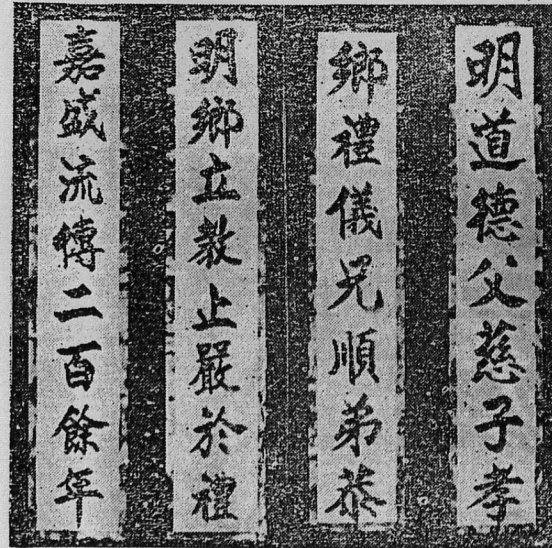 明道德父慈子孝
鄉禮儀兄順弟恭
明鄉立教止嚴於禮
嘉盛流傳二百餘年